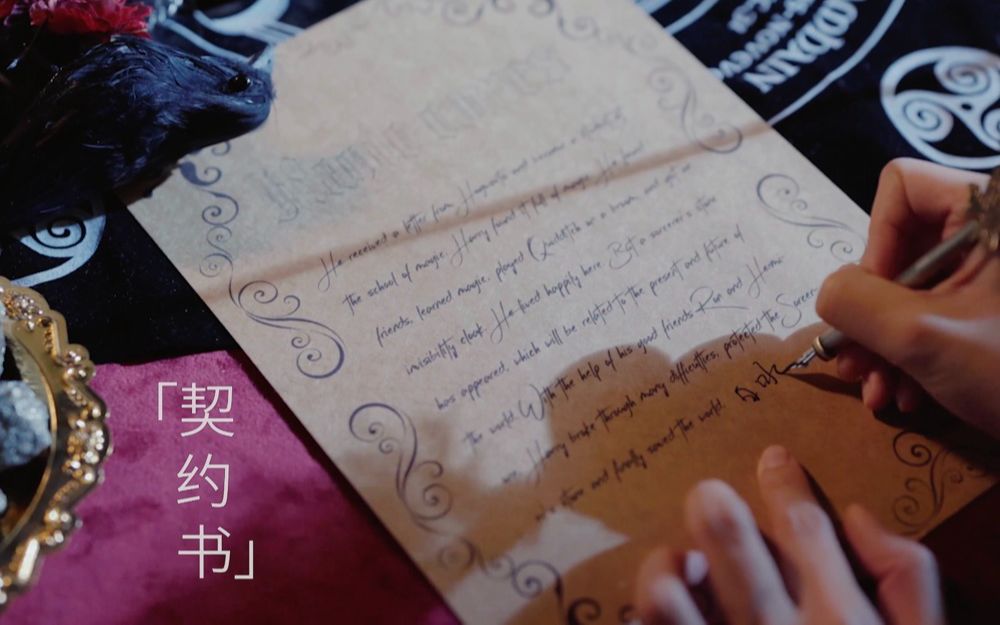 He received a letter from Hogwarts and became a student of
the school of magic. Harry found it full of magic. He found
friends, learned magic, played Quidditch on a broom, and got an
invisibility cloak. He lived happily here. But a sorcerer's stone
has appeared, which will be related to the present and future of
the world. With the help of his good friends Ron and Hermi
one, Harry broke through many difficulties, protected the Sorcer
er's stone and finally saved the world.
「契约书」